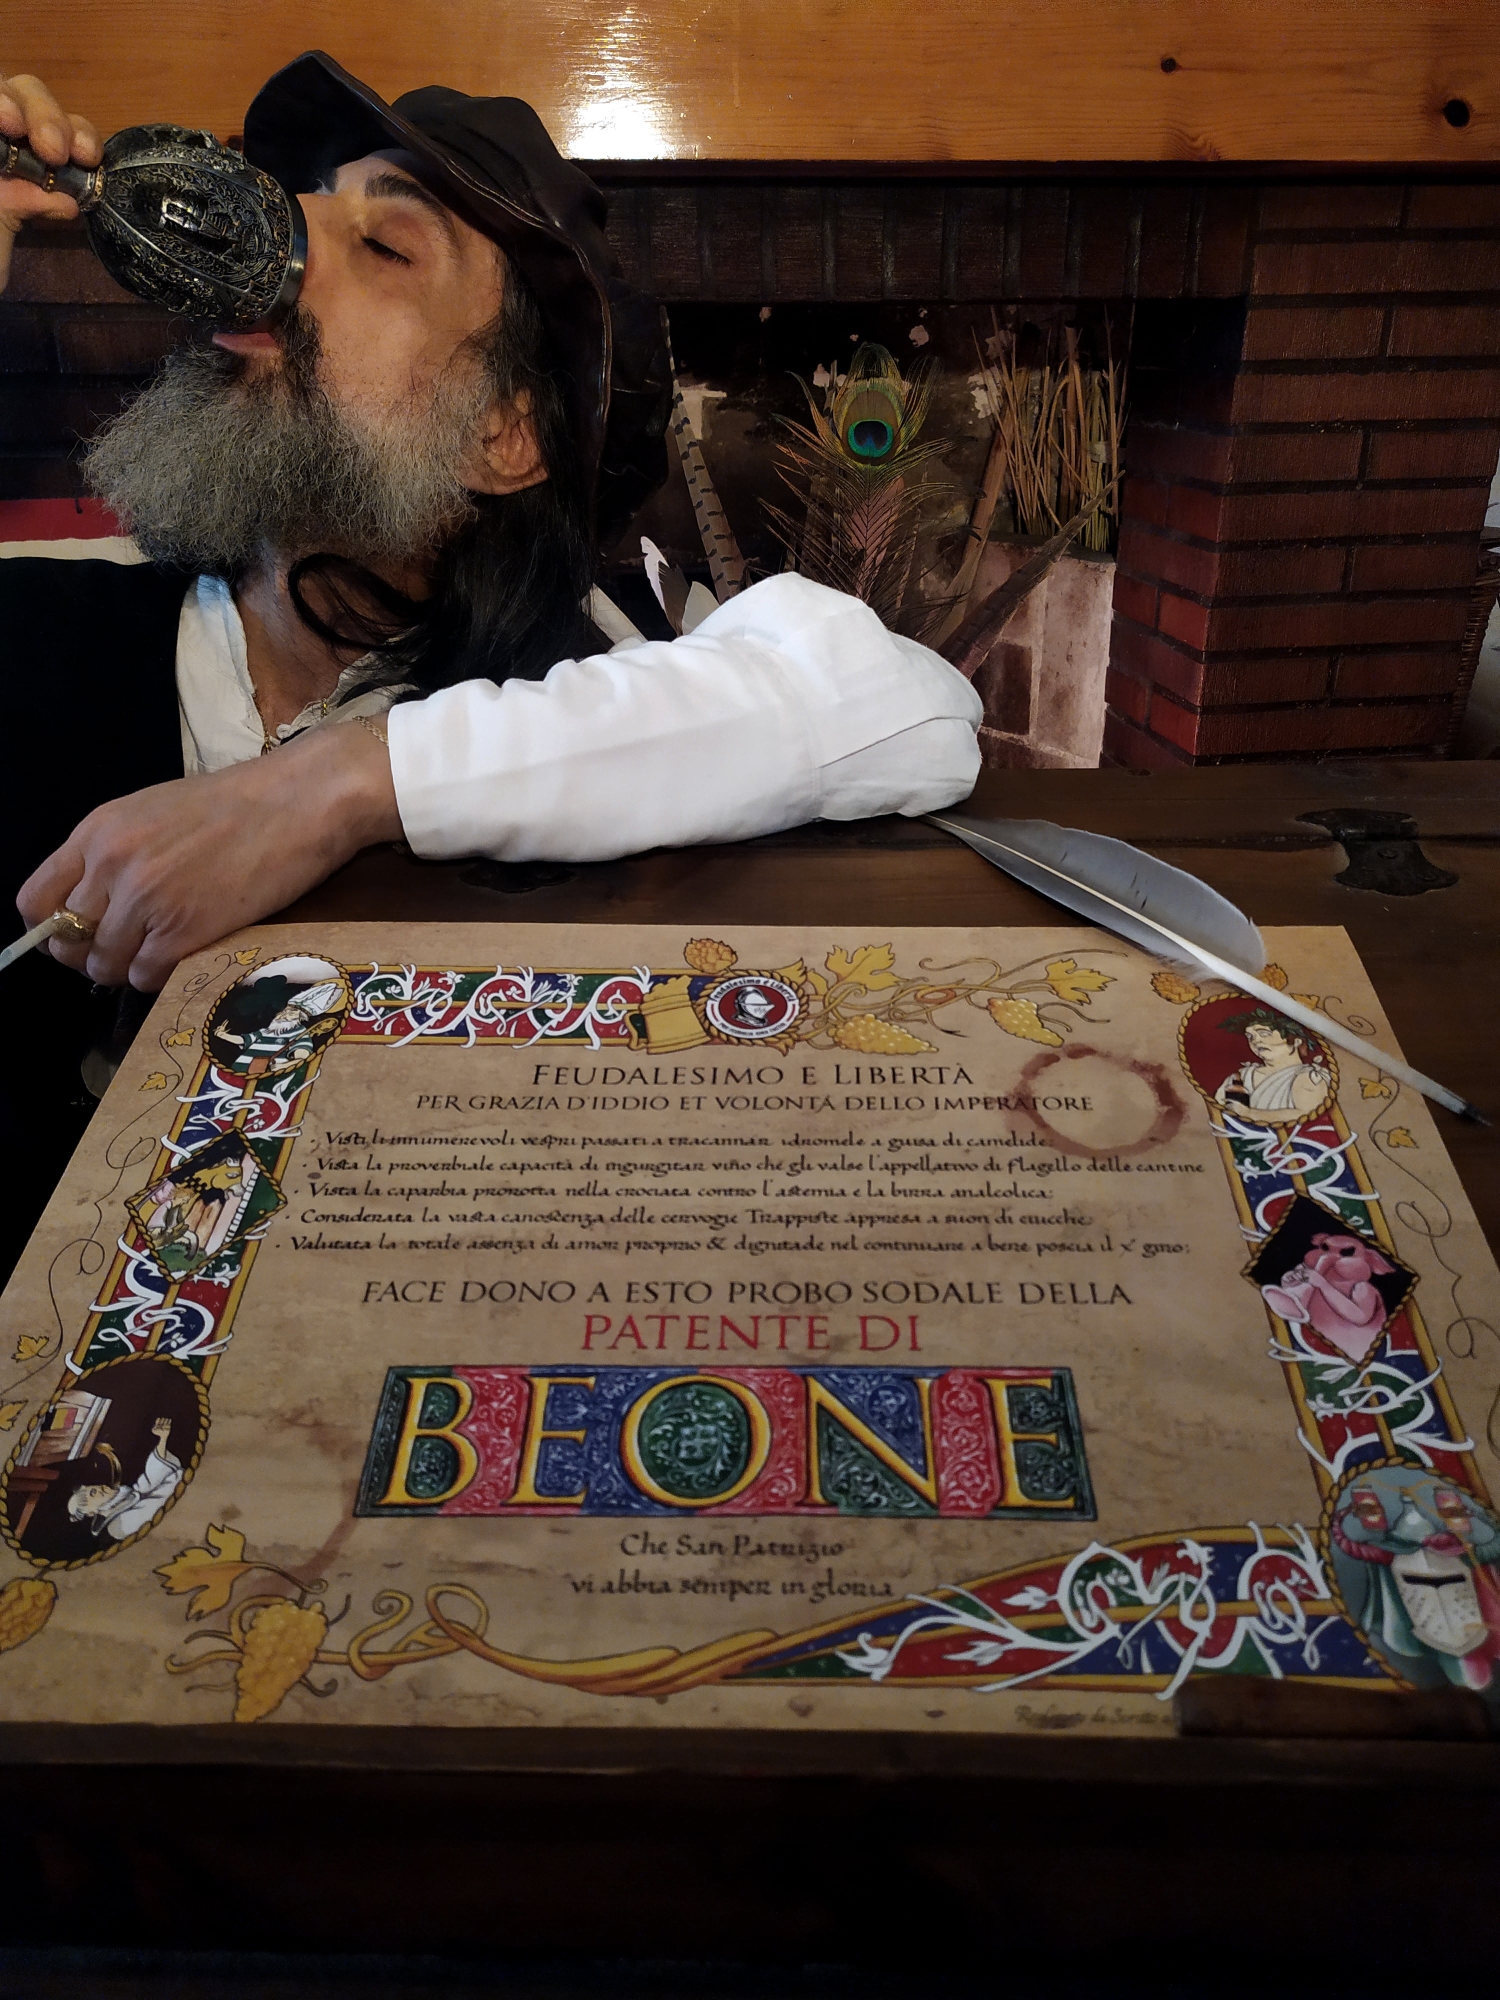 Feudalesimo e Libertà
FEUDALESIMO E LIBERTÀ
PER GRAZIA D'IDDIO ET VOLONTÀ DELLO IMPERATORE
· Visti li innumerevoli vespri passati a tracannar idromele a guisa di camelide;
· Vista la proverbiale capacità di ingurgitar vino che gli valse l'appellativo di flagello delle cantine
· Vista la caparbia prorotta nella crociata contro l'astemia e la birra analcolica;
· Considerata la vasta canoscenza delle cervogie Trappiste appresa a suon di ciucche;
· Valutata la totale assenza di amor proprio & dignitade nel continuare a bere poscia il X° giro;
FACE DONO A ESTO PROBO SODALE DELLA
PATENTE DI
BEONE
Che San Patrizio
vi abbia semper in gloria